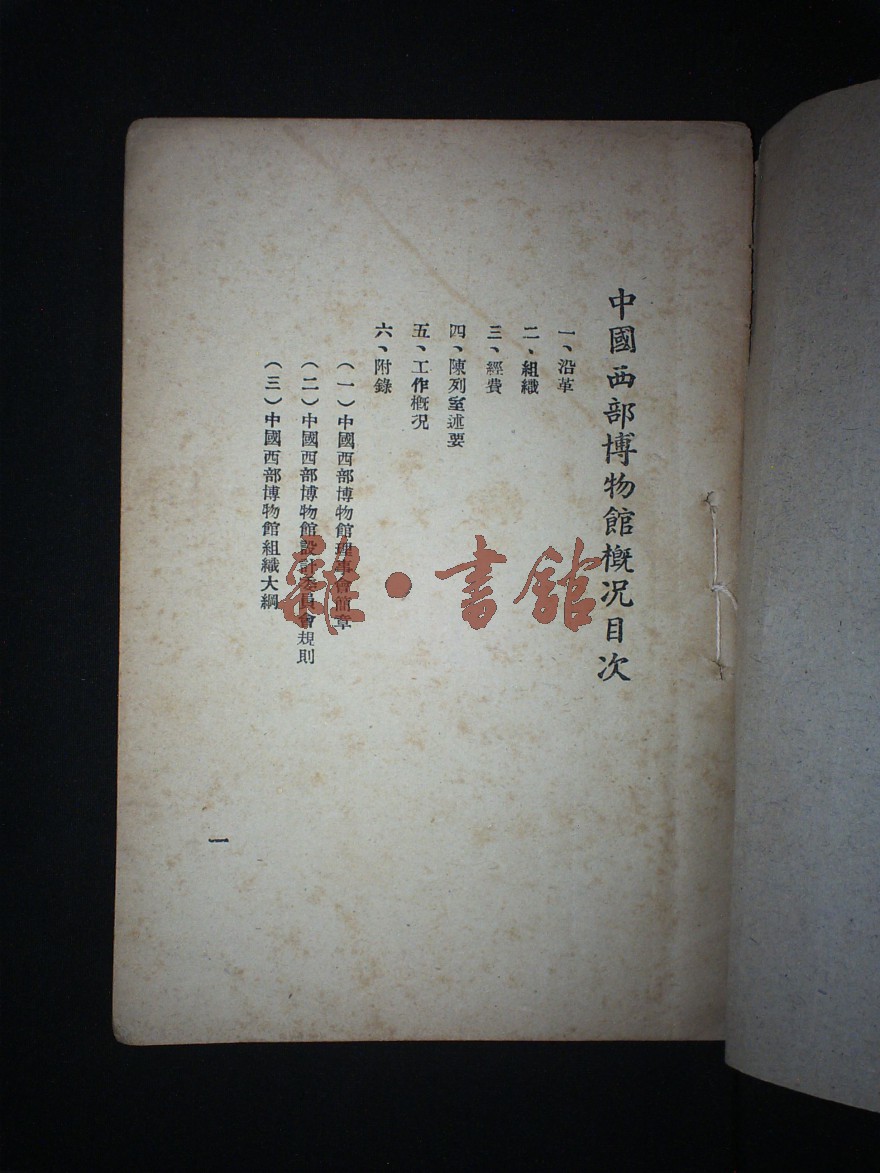 中國西部博物館概况目次
一、沿革
二、組織
三、經費
四、陳列室述要
五、工作概況
六、附錄
（一）中國西部博物館理事會簡章
（二）中國西部博物館設計委員會規則
（三）中國西部博物館組織大綱
一
雜·書館